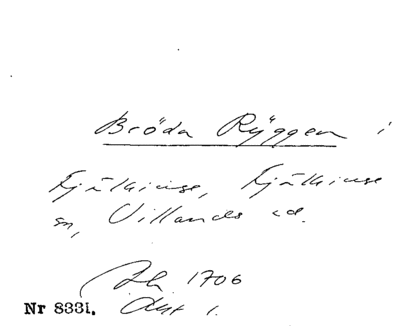 Bröda Ryggen i
Fjälkinge, Fjälkinge
sn, Villands hd.
1706
Nr 8331. Akt 1.